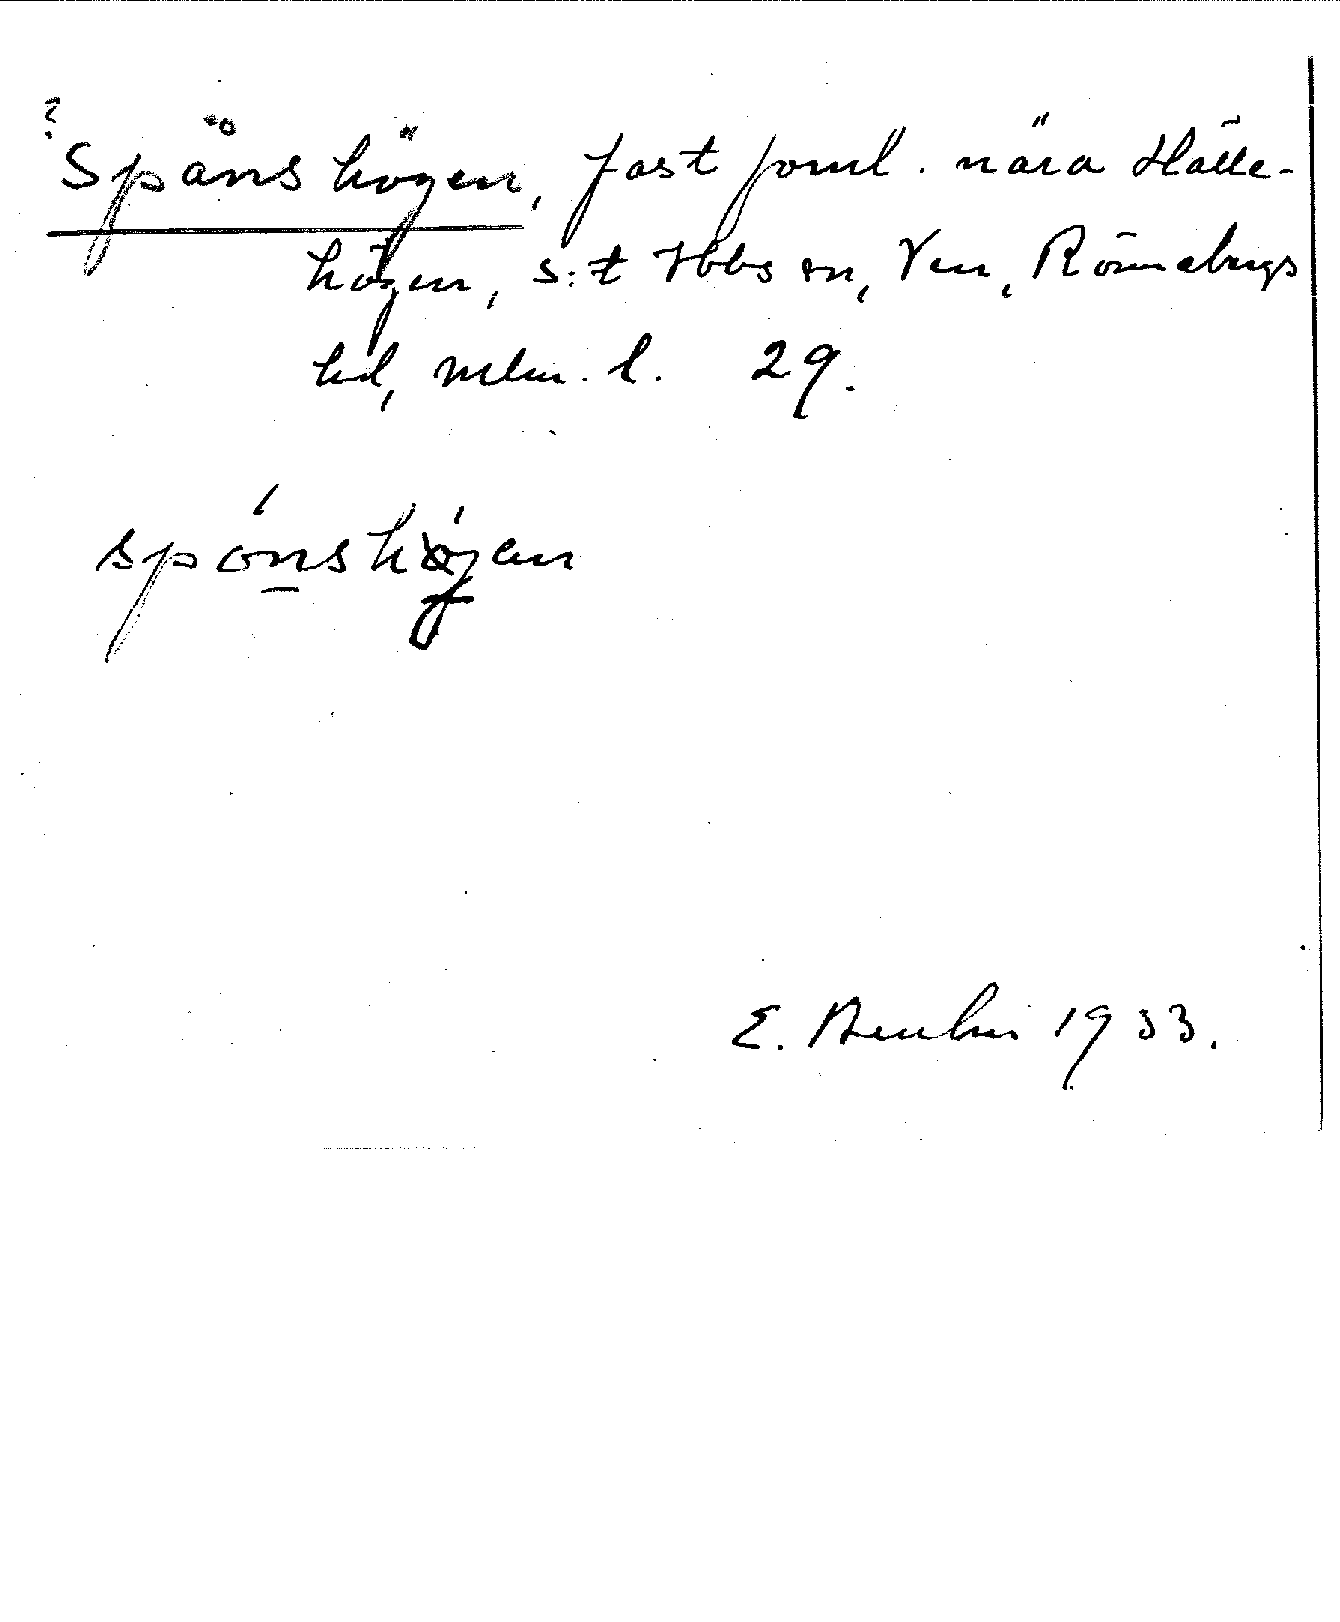 ? Spånshögen, fast fornl. nära Hälle-
högen, S:t Ibbs sn, Ven, Rönnebergs
hd, Mlm. l. 29.
spónshǿgen
E. 1933.